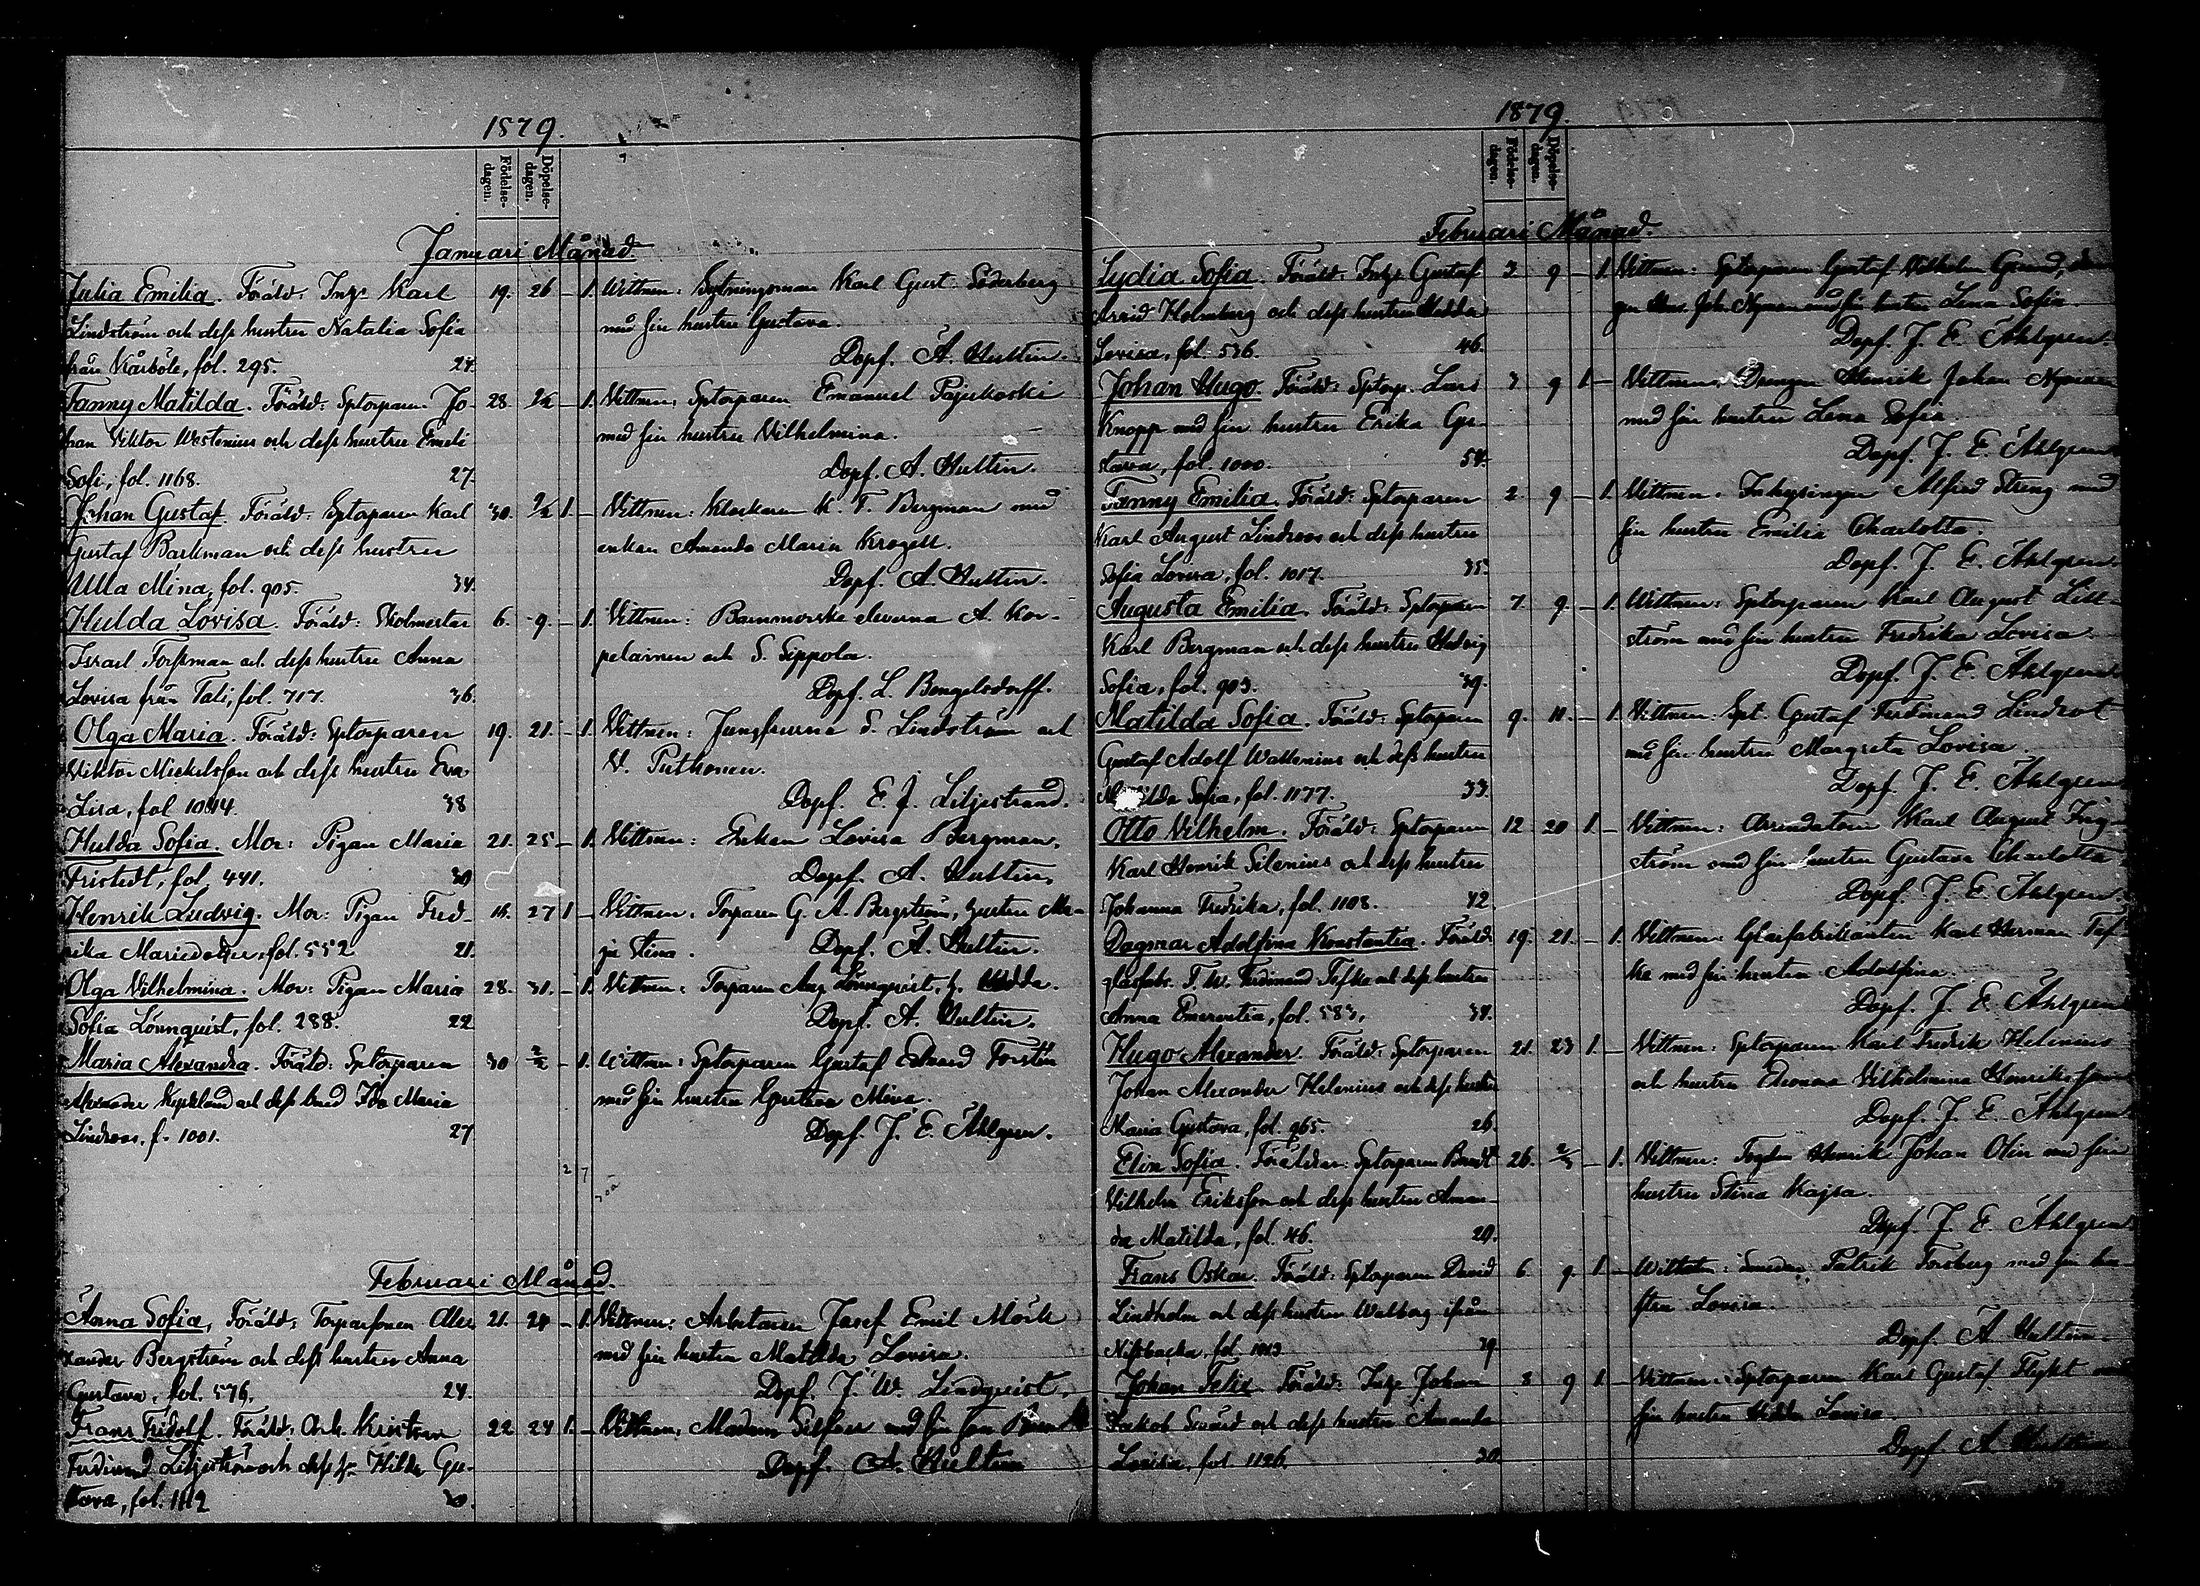 1879.
Födelse-
dagen.
Döpelse-
dagen.
Januari Månad.
Julia Emilia. Föräld: Inh. Karl 19. 26 – 1.
Lindström och dess hustru Natalia Sofia
från Kårböle, fol. 295. 24.
Wittnen: Sytningsman Karl Gust. Söderberg
med sin hustru Gustava.
Döpf. A. Hultin.
Fanny Matilda. Föräld: Sptorparen Jo- 28 2/2 – 1.
han Viktor Westenius och dess hustru Emeli
Sofi, fol. 1168. 27.
Vittnen: Sptorparen Emanuel Pajukoski
med sin hustru Vilhelmina.
Döpf. A. Hultin.
Johan Gustaf. Föräld: Sptorparen Karl 30. 2/2 1. –
Gustaf Barkman och dess hustru
Ulla Mina, fol. 905. 34.
Vittnen: Klockaren K. F. Bergman med
enkan Amanda Maria Krogell.
Döpf. A. Hultin.
Hulda Lovisa. Föräld: Skolmester 6. 9. – 1.
Israel Forssman och dess hustru Anna
Lovisa från Tali, fol. 717. 36.
Vittnen: Barnmorske eleverna A. Kor-
pelainen och S. Sippola.
Döpf. L. Bengelsdorff.
Olga Maria. Föräld: Sptorparen 19. 21. – 1.
Viktor Mickelsson och dess hustru Eva
Lisa, fol 1044. 38
Vittnen: Jungfrurna S. Lindström och
V. Puthonen.
Döpf. E. J. Liljestrand.
Hulda Sofia. Mor: Pigan Maria 21. 25 – 1.
Fristedt, fol. 441. 30
Vittnen: Enkan Lovisa Bergman.
Döpf. A. Hultin.
Henrik Ludvig. Mor: Pigan Fred- 27 1 –
rika fol. 552 21.
Wittnen: Torparen G. A. Bergström, hustru Ma-
ja Stina. Döpf. A. Hultin.
Olga Vilhelmina. Mor: Pigan Maria 28. 31. – 1.
Sofia Lönnquist, fol. 288. 22
Vittnen: Torparen Aug Lönnquist, h. Hedda.
Döpf. A. Hultin.
Maria Alexandra. Föräld: Sptorparen 30 2/2 – 1.
Alexander och dess Ida Maria
Lindroos, f. 1001. 27
Wittnen: Sptorparen Gustaf Edvard Forstén
med sin hustru Gustava Mina.
Döpf. J. E. Åhlgren.
2 7
Februari Månad.
Anna Sofia, Föräld: Torparsonen Alex- 21. 24 – 1.
xander Bergström och dess hustru Anna
Gustava, fol. 576. 24.
Vittnen: Arbetaren Josef Emil Mörk
med sin hustru Matilda Lovisa.
Döpf. J. W. Lindquist.
Frans Fridolf. Föräld: Kristian 22 24 1. –
Ferdinand Liljeström och dess h. Hilda Gu-
stava, fol. 1112 30.
Vittnen: Madam med sin son
Döpf. A. Hultin
1879.
Födelse-
dagen.
Döpelse-
dagen.
Februari Månad.
Lydia Sofia. Föräld: Inh. Gustaf 3 9 – 1.
Arvid Holmberg och dess hustru Hedda
Lovisa, fol. 536. 46.
Vittnen: Sptorparen Gustaf Vilhelm
Joh. Nyman med sin hustru Lena Sofia.
Döpf. J. E. Åhlgren.
Johan Hugo. Föräld: Sptorp. Lars 3 9 1 –
Knopp med sin hustru Erika Gu-
stava, fol. 1000. 54.
Vittnen: Drengen Henrik Johan Nyman
med sin hustru Lena Sofia
Döpf. J. E. Åhlgren
Fanny Emilia. Föräld: Sptorparen 2 9 – 1.
Karl August Lindroos och dess hustru
Sofia Lovisa, fol. 1017. 35.
Vittnen: Inhysingen Alfred Streng med
sin hustru Emilia Charlotta.
Döpf. J. E. Åhlgren.
Augusta Emilia. Föräld: Sptorparen 7. 9. – 1.
Karl Bergman och dess hustru Hedvig
Sofia, fol. 903. 39.
Wittnen: Sptorparen Karl August Lill-
ström med sin hustru Fredrika Lovisa.
Döpf. J. E. Åhlgren
Matilda Sofia. Föräld: Sptorparen 9. 11. – 1.
Gustaf Adolf Wallenius och dess hustru
Matilda Sofia, fol. 1177. 33.
Vittnen: Spt. Gustaf Ferdinand Lindroot
med sin hustru Margreta Lovisa.
Döpf. J. E. Åhlgren
Otto Vilhelm. Föräld: Sptorparen 12 20 1. –
Karl Henrik Silenius och dess hustru
Johanna Fredrika, fol. 1108. 42.
Vittnen: Arrendatorn Karl August
ström med sin hustru Gustava Charlotta
Döpf. J. E. Åhlgren.
Dagmar Adolfina Konstantia. Föräld: 19. 21. – 1.
glasfabr. F. W. Ferdinand Tefke och dess hustru
Anna Emerentia, fol. 583. 34.
Vittnen: Glasfabrikanten Karl Herman Tef-
ke med sin hustru Adolfina.
Döpf. J. E. Åhlgren
Hugo Alexander. Föräld: Sptorparen 21. 23 1. –
Johan Alexander Helenius och dess hustru
Maria Gustava, fol. 965. 26.
Vittnen: Sptorparen Karl Fredrik Helenius
och hustru Eleonora Vilhelmina
Döpf. J. E. Åhlgren
Elin Sofia. Föräldrar: Sptorparen Berndt 26. 2/3 – 1.
Vilhelm Eriksson och dess hustru Aman-
da Matilda, fol. 46. 20.
Vittnen: Henrik Johan Olin med sin
hustru Stina Kajsa.
Döpf. J. E. Åhlgren
Frans Oskar. Föräld: Sptorparen David 6. 9. 1. –
Lindholm och dess hustru Walborg ifrån
Nissbacka, fol. 1013. 39.
Wittnen: Smeden Patrik Forsberg med sin hu-
stru Lovisa.
Döpf. A Hultin.
Johan Felix. Föräld: Inh. Johan 8 9 1. –
Jakob Svärd och dess hustru Amanda
Lovisa, fol. 1126. 30.
Vittnen: Sptorparen Karl Gustaf Flykt med
sin hustru Hedda Lovisa.
Döpf A Hultin